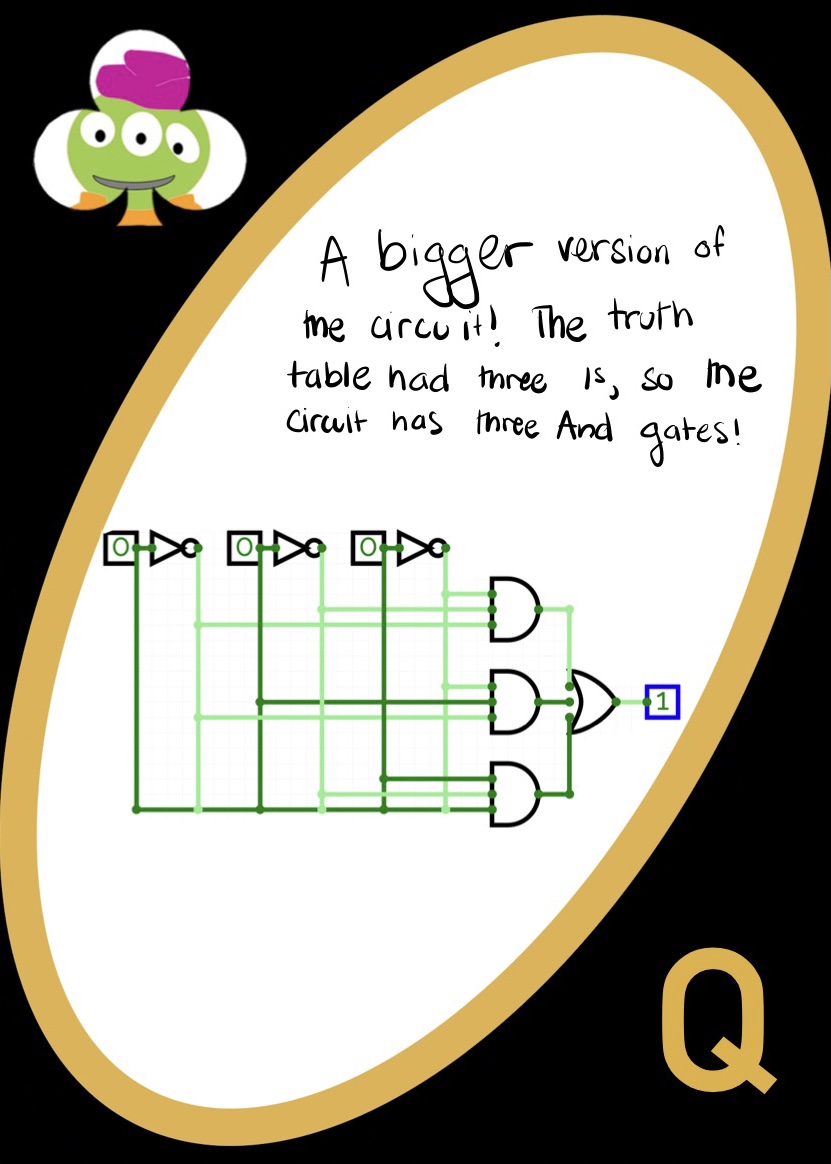 A bigger version of
the circuit! The truth
table had three 1s, so the
circuit has three And gates!
0 0 0
1
Q